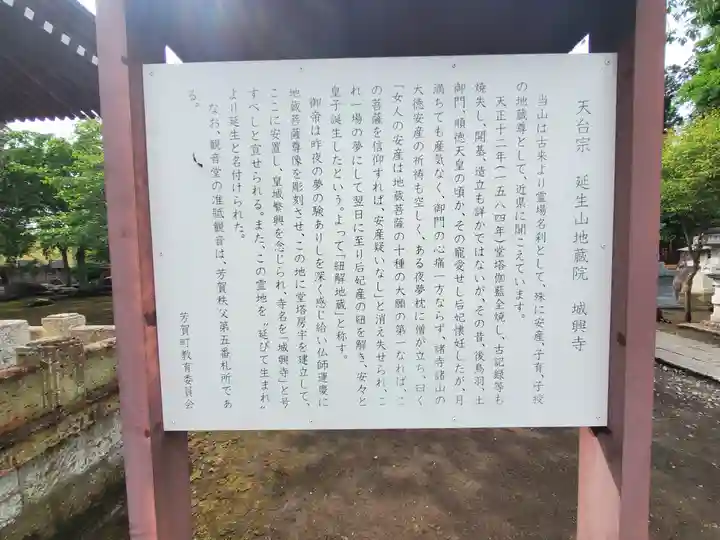 天台宗　延生山地蔵院　城興寺
当山は古来より霊場名刹として、殊に安産、子育、子授
の地蔵尊として、近県に聞こえています。
天正十二年（一五八四年）堂塔伽藍全焼し、古記録等も
焼失し、開基、造立も詳かではないが、その昔、後鳥羽、土
御門、順徳天皇の頃か、その寵愛せし后妃懐妊したが、月
満ちても産気なく、御門の心痛一方ならず、諸寺諸山の
大徳安産の祈祷も空しく、ある夜夢枕に僧が立ち、曰く
「女人の安産は地蔵菩薩の十種の大願の第一なれば、こ
の菩薩を信仰すれば、安産疑いなし」と消え失せられ、こ
れ一場の夢にして翌日に至り后妃産の紐を解き、安々と
皇子誕生したという。よって「紐解地蔵」と称す。
御帝は昨夜の夢の験ありしを深く感じ給い仏師運慶に
地蔵菩薩尊像を彫刻させ、この地に堂塔房宇を建立して、
ここに安置し、皇城繁興を念じられ、寺名を「城興寺」と号
すべしと宣せられる。また、この霊地を〝延びて生まれ〟
より延生と名付けられた。
なお、観音堂の准胝観音は、芳賀秩父第五番札所であ
る。
芳賀町教育委員会